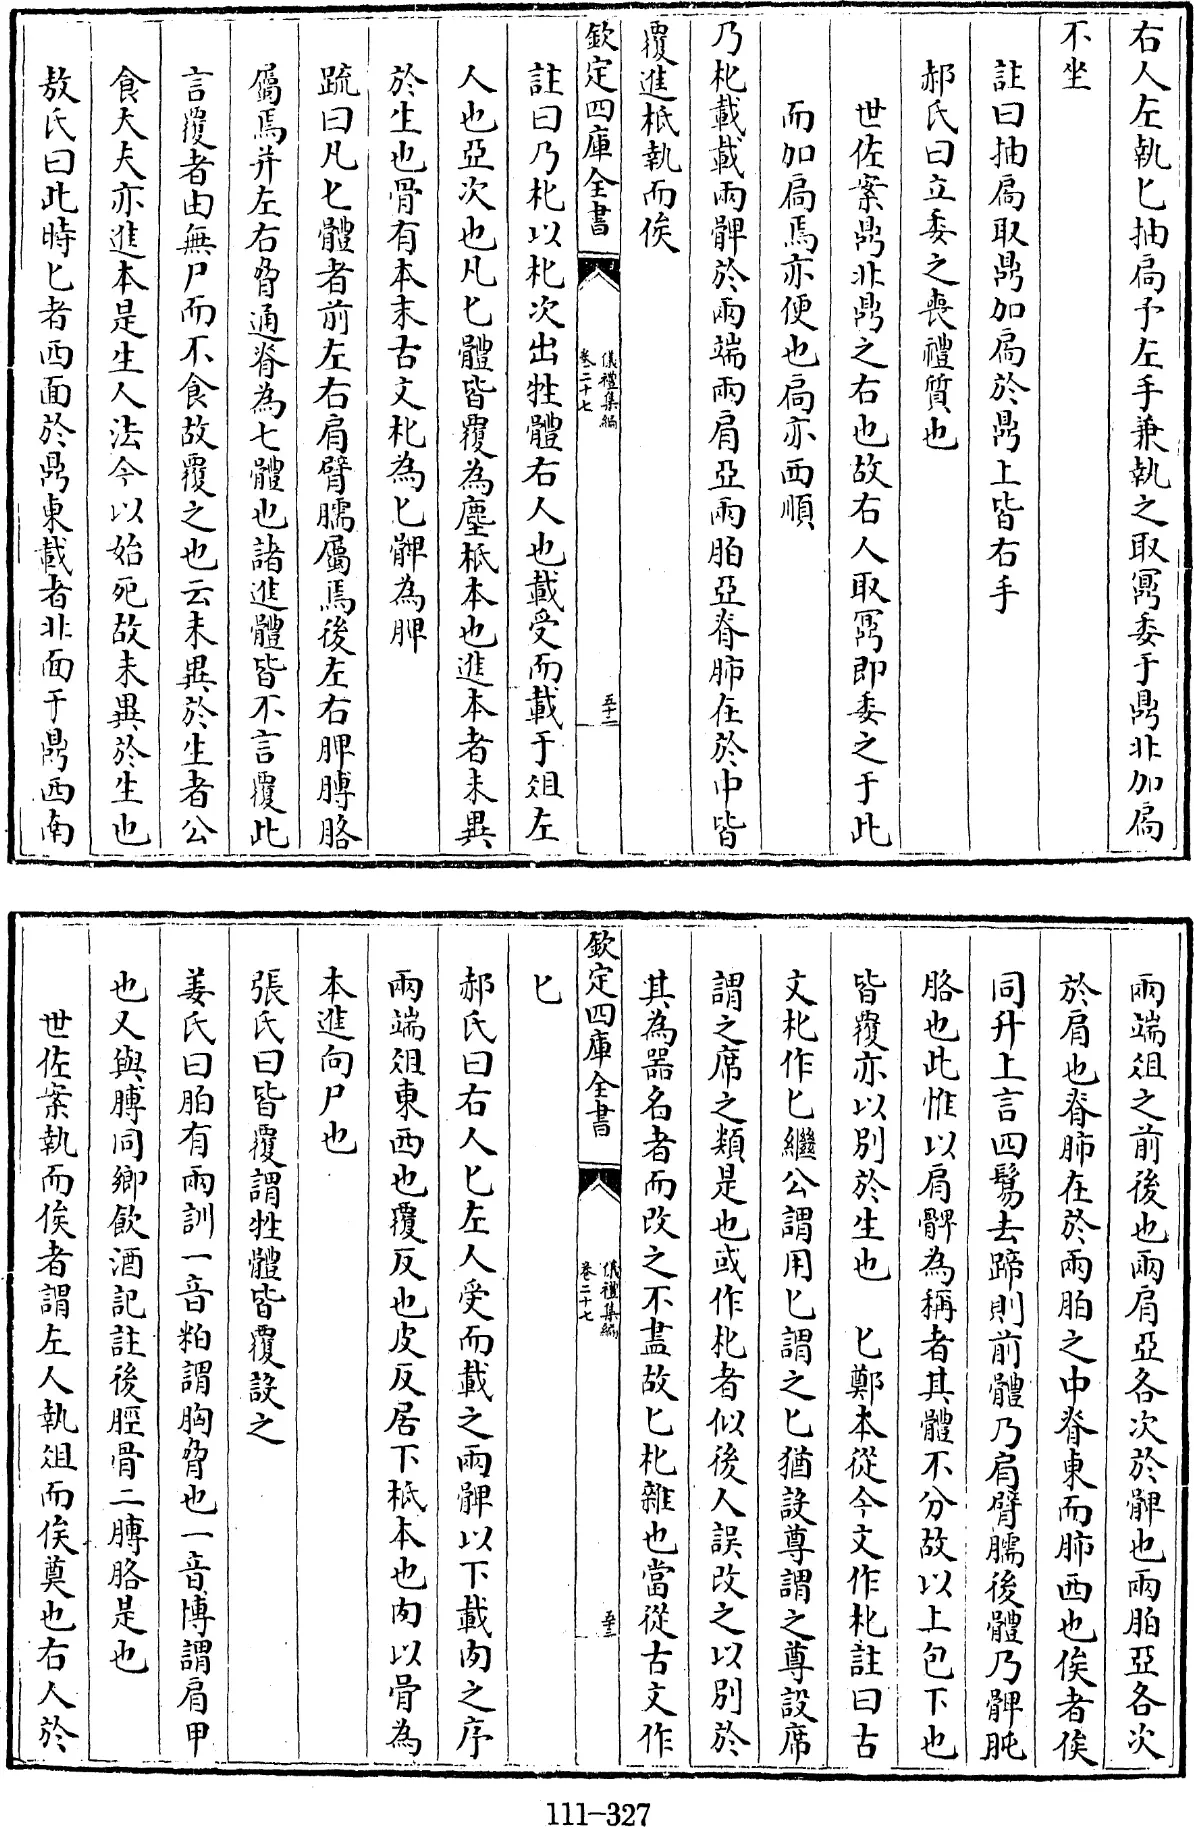 右人左執匕抽扃予左手兼執之取鼏委于鼎北加扃
不坐
註曰抽扃取鼏加扃於鼎上皆右手
郝氏曰立委之喪禮質也
世佐案鼎北鼎之右也故右人取鼏即委之于此
而加扃焉亦便也扃亦西順
乃朼載載兩髀於兩端兩肩亞兩胉亞脊肺在於中皆
覆進柢執而俟
欽定四庫全書
儀禮集編
卷二十七
五十二
註曰乃朼以朼次出牲體右人也載受而載于俎左
人也亞次也凡匕體皆覆為塵柢本也進本者未異
於生也骨有本末古文朼為匕髀為脾
疏曰凡匕體者前左右肩臂臑屬焉後左右脾膊胳
屬焉并左右脅通脊為七體也諸進體皆不言覆此
言覆者由無尸而不食故覆之也云未異於生者公
食大夫亦進本是生人法今以始死故未異於生也
敖氏曰此時匕者西面於鼎東載者北面于鼎西南
兩端俎之前後也兩肩亞各次於髀也兩胉亞各次
於肩也脊肺在於兩胉之中脊東而肺西也俟者俟
同升上言四鬄去蹄則前體乃肩臂臑後體乃髀肫
胳也此惟以肩髀為稱者其體不分故以上包下也
皆覆亦以別於生也　匕鄭本從今文作朼註曰古
文朼作匕繼公謂用匕謂之匕猶設尊謂之尊設席
謂之席之類是也或作朼者似後人誤改之以別於
其為器名者而改之不盡故匕朼雜也當從古文作
欽定四庫全書
儀禮集編
卷二十七
五十三
匕
郝氏曰右人匕左人受而載之兩髀以下載肉之序
兩端俎東西也覆反也皮反居下柢本也肉以骨為
本進向尸也
張氏曰皆覆謂牲體皆覆設之
姜氏曰胉有兩訓一音粕謂胸脅也一音博謂肩甲
也又與膊同鄉飲酒記註後脛骨二膊胳是也
世佐案執而俟者謂左人執俎而俟奠也右人於
111-327